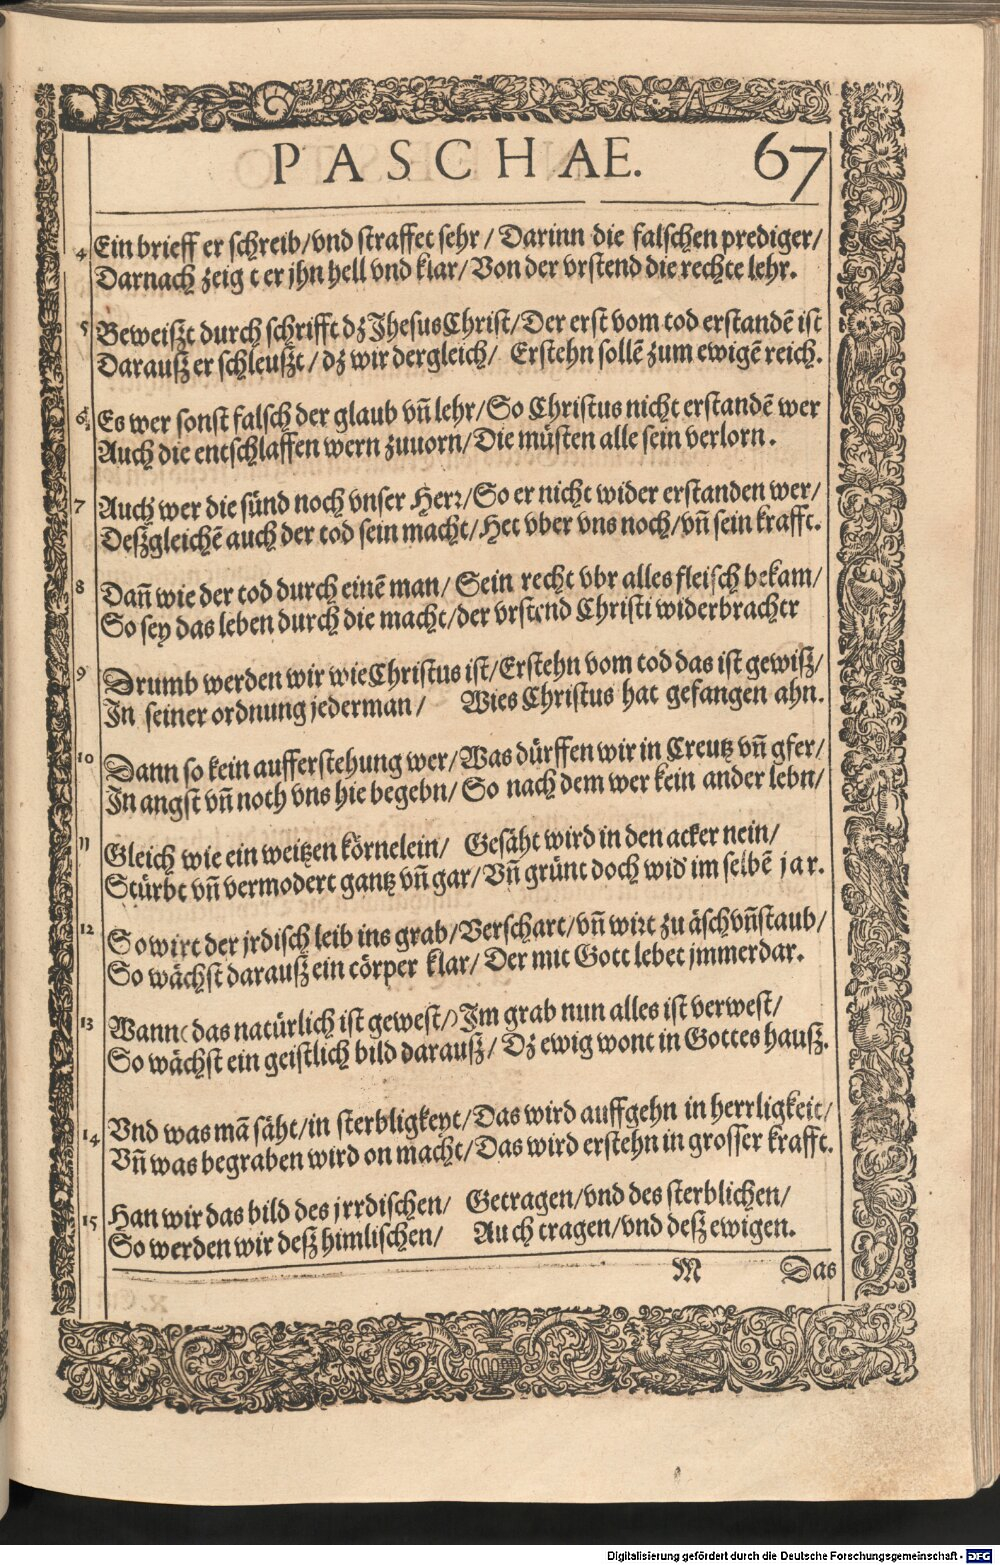 PASCHAE. 67
4 Ein brieff er schreib/vnd straffet sehr/ Darinn die falschen prediger/
Darnach zeig t er jhn hell vnd klar/ Von der vrstend die rechte lehr.
5 Beweiszt durch schrifft dz Jhesus Christ/ Der erst vom tod erstandē ist
Darausz er schleuszt/ dz wir dergleich/ Erstehn sollē zum ewigē reich.
6 Es wer sonst falsch der glaub vñ lehr/ So Christus nicht erstandē wer
Auch die entschlaffen wern zuuorn/ Die müsten alle sein verlorn.
7 Auch wer die sünd noch vnser Herr/ So er nicht wider erstanden wer/
Deszgleichē auch der tod sein macht/ Het vber vns noch/vñ sein krafft.
8 Dañ wie der tod durch einē man/ Sein recht vbr alles fleisch bekam/
So sey das leben durch die macht/ der vrstend Christi widerbracht
9 Drumb werden wir wie Christus ist/ Erstehn vom tod das ist gewisz/
In seiner ordnung jederman/ Wies Christus hat gefangen ahn.
10 Dann so kein aufferstehung wer/ Was dürffen wir in Creutz vñ gfer/
In angst vñ noth vns hie begebn/ So nach dem wer kein ander lebn/
11 Gleich wie ein weitzen körnelein/ Gesäht wird in den acker nein/
Stürbt vñ vermodert gantz vñ gar/ Vñ grünt doch wid' im selbē jar.
12 So wirt der jrdisch leib ins grab/ Verschart/vñ wirt zu äsch vñ staub/
So wächst darausz ein cörper klar/ Der mit Gott lebet jmmerdar.
13 Wann (das natürlich ist gewest/) Im grab nun alles ist verwest/
So wächst ein geistlich bild darausz/ Dz ewig wont in Gottes hausz.
14 Vnd was mā säht/in sterbligkeyt/ Das wird auffgehn in herrligkeit/
Vñ was begraben wird on macht/ Das wird erstehn in grosser krafft.
15 Han wir das bild des jrrdischen/ Getragen/vnd des sterblichen/
So werden wir desz himlischen/ Auch tragen/vnd desz ewigen.
M Das
Digitalisierung gefördert durch die Deutsche Forschungsgemeinschaft - DFG